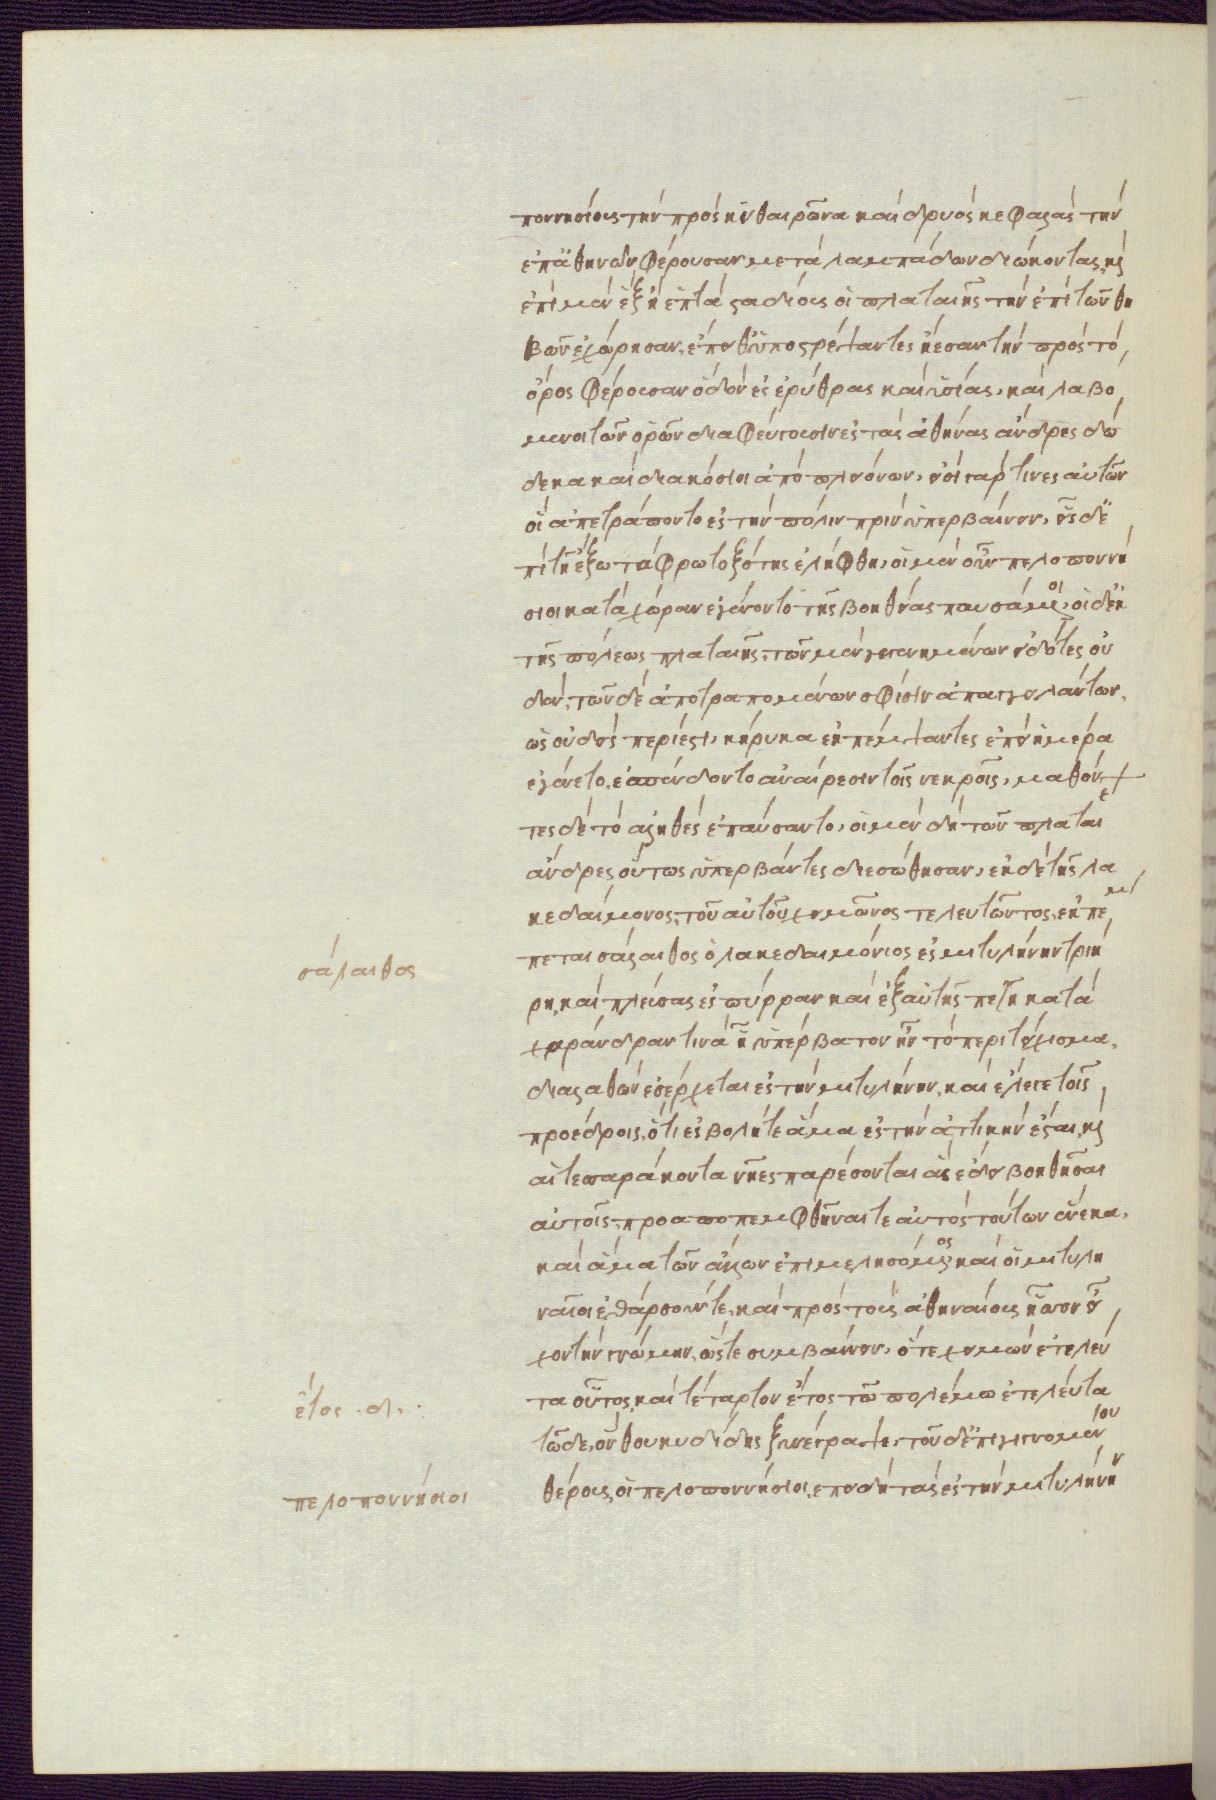 ποννησίους τὴν πρὸς κιθαιρῶνα καὶ δρυὸς κεφαλὰς τὴν
ἐπ' ἀθηνῶν φέρουσαν μετὰ λαμπάδων διώκοντας, καὶ
ἐπὶ μὲν ἓξ ἢ ἑπτὰ σταδίους οἱ πλαταιῆς τὴν ἐπὶ τῶν θη
βῶν ἐχώρησαν, ἔπειθ' ὑποστρέψαντες ᾔεσαν τὴν πρὸς τὸ
ὄρος φέρουσαν ὁδὸν ἐς ἐρύθρας καὶ ὑσιάς, καὶ λαβό
μενοι τῶν ὀρῶν διαφεύγουσιν ἐς τὰς ἀθήνας ἄνδρες δώ
δεκα καὶ διακόσιοι ἀπὸ πλειόνων, εἰσὶ γάρ τινες αὐτῶν
οἳ ἀπετράποντο ἐς τὴν πόλιν πρὶν ὑπερβαίνειν, εἷς δ' ἐ
πὶ τῇ ἔξω τάφρω τοξότης ἐλήφθη, οἱ μὲν οὖν πελοποννή
σιοι κατὰ χώραν ἐγένοντο τῆς βοηθείας παυσάμενοι, οἱ δ' ἐκ
τῆς πόλεως πλαταιῆς, τῶν μὲν γεγενημένων εἰδότες οὐ
δέν, τῶν δὲ ἀποτραπομένων σφίσιν ἀπαγγειλάντων,
ὡς οὐδεὶς περίεστι, κήρυκα ἐκπέμψαντες ἐπεὶ ἡμέρα
ἐγένετο, ἐσπένδοντο ἀναίρεσιν τοῖς νεκροῖς, μαθόν
τες δὲ τὸ ἀληθὲς ἐπαύσαντο, οἱ μὲν δὴ τῶν πλαταιέ
ἄνδρες οὕτως ὑπερβάντες διεσώθησαν, ἐκ δὲ τῆς λα
κεδαίμονος, τοῦ αὐτοῦ χειμῶνος τελευτῶντος, ἐκπέμ
πεται σάλαιθος ὁ λακεδαιμόνιος ἐς μιτυλήνην τριή
ρει, καὶ πλεύσας ἐς πύρραν καὶ ἐξ αὐτῆς πεζῇ κατὰ
χαράνδραν τινὰ ᾗ ὑπέρβατον ἦν τὸ περιτείχισμα,
διαλαθὼν ἐσέρχεται ἐς τὴν μιτυλήνην, καὶ ἔλεγε τοῖς
προέδροις, ὅτι ἐσβολή τε ἅμα ἐς τὴν ἀττικὴν ἔσται, καὶ
αἱ τεσσαράκοντα νῆες παρέσονται ἃς ἔδει βοηθῆσαι
αὐτοῖς, προαποπεμφθῆναί τε αὐτὸς τούτων ἕνεκα,
καὶ ἅμα τῶν ἄλλων ἐπιμελησόμενος, καὶ οἱ μιτυλη
ναῖοι ἐθάρσουν τε, καὶ πρὸς τοὺς ἀθηναίους ἧσσον εἶ
χον τὴν γνώμην, ὥστε συμβαίνειν, ὅ τε χειμὼν ἐτελεύ
τα οὗτος, καὶ τέταρτον ἔτος τῶ πολέμω ἐτελεύτα
τῶδε, ὃν θουκυδίδης ξυνέγραψε, τοῦ δ' ἐπιγιγνομένου
θέρους, οἱ πελοποννήσιοι, ἐπειδὴ τὰς ἐς τὴν μιτυλήνην
σάλαιθος
ἔτος . δ. .
πελοποννήσιοι